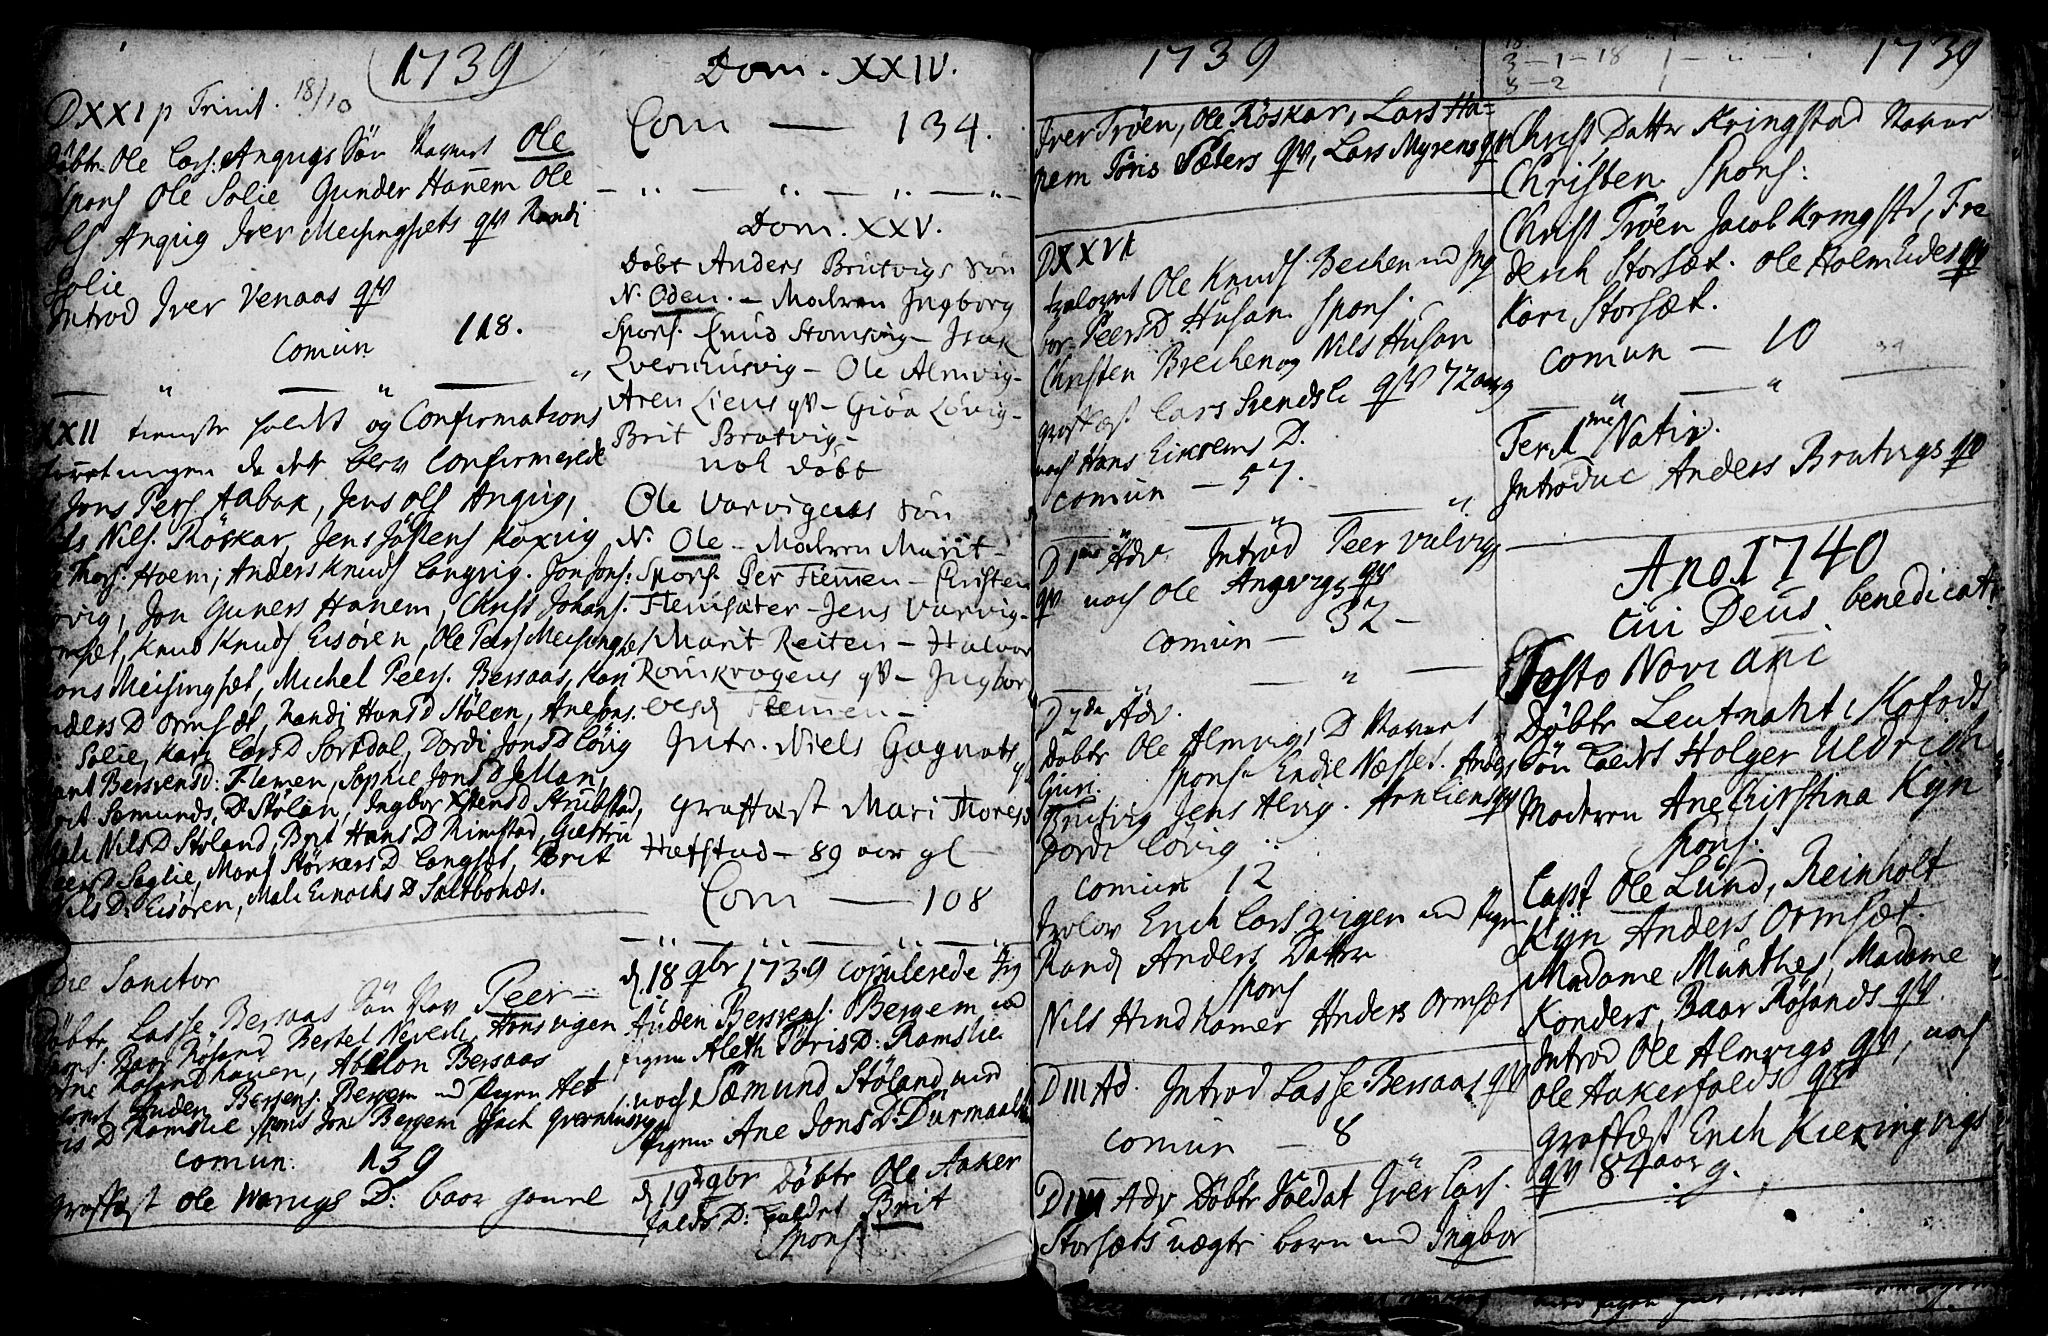 1739
D XXI p Trinit. 18/10
Döbtr Ole Lars: Angvigs Sön Navnet Ole
Spons Ole Solie Gunder Hanem Ole
Ols Angvig Iver Meisingsæts qv Randi
Solie
Introd Iver Venaas qv
Comun 118.
XXII tieneste holdt og Confirmations
forretningen da dette blev Confirmerede
Jons Pers Aabak, Jens Ols Angvig,
Nils Nils. Röskar, Jens Jöstens Koxvig
Thors: Hoem; Anders Knuds Langvig. Jon Jons:
Lövig, Jon Guners Hanem, Chrust Johans.
Knud Knuds Eisören, Ole Pers Meisingset
Jons Meisingsæt, Michel Peers. Bersaas, Kari
Anders D Ormsæt, Randi Hans D Stölen, Ane Jons.
Solie, Kari Lars D Sortdal, Dordi Jons D Lövig
Berit Bersvensd: Flemen, Sophie Jons D Jellan,
Berit Somunds. D. Stölan, Ingbor Xstens D Strubstad,
Mali Nils D Stöland, Brit Hans D Rimstad, Giertru
Peers D Soglie, Marit Störkers D Langsæt, Brit
Nils D. Eisören, Mali Einochs D Saltbohæs.
Die Sanctor
Döbtr Lasse Bersaas Sön Nav Peer
Spons Baar Rösand Bertel Neverli, Hans vigen
Ane Rosandhauen, Abelon Bersaas
Anden Bersens. Bergem und Pigen Alet
Joris D Ramslie Spons Jon Bergem Isach Qvernhusvig
Comun. 139
Graffæst Ole Warvigs D: baar
Dom. XXIV.
Com — 134.
Dom. XXV.
Döbt Anders Brutvigs Sön
N. Oden. – Modren Ingborg
Spons. Knud Stomsvig – Isak
Qvernhusvig – Ole Almvig –
Aren Liens qv – Giöa Lövig –
Brit Brutvig –
nok döbt
Ole Varvigens Sön
N. Ole – Modren Marit –
Spons. Per Flemen – Christen
Flemsæter – Jens Varvig –
Marit Reiten – Halvor
Romkrogens qv – Ingbor
Flemen –
Intr. Niels Gagnats
qv
Graffæst Mari Thores D
Hafstad – 89 aar gl –
Com — 108
d 18 9br 1739 Copulerede
Auden Bersvens. Bergem und
Pigen Aleth Joris D: Ramslie
noch Sæmund Stöland und
Pigen Ane Jons D. Durmaals
d 19 9br Döbtr Ole Aaker
falds D: kaldet Brit
Spons.
1739
Iver Tröen, Ole Röskar, Lars Ha=
nem Joris Sæters qv, Lars Myrens qv
D XXVI
trolovet Ole Knuds. Bechen und Ing
bor Peers D Husan. Spons.
Christen Brechen og Nils Husan
Graffæst Lars Svendsli qv 72 aar g
noch Hans Eirisens D.
Comun – 57.
D 1ma Adv Introd Peer Vulvigs
qv noch Ole Angvigs qv
Comun – 32 –
D 2da Adv.
Döbtr Ole Almvigs D Navnet
Guri. Spons. Endre Næsset. Anders
Brutvig Jens Alvig. Arn Liens qv
Dordi Lövig
Comun 12
Trolov Erich Lars Vigen und Pigen
Randi Anders Datter
Spons
Nils Hindhamer Anders Ormset
D III Ad. Introd Lasse Bersaas qv
Comun – 8
D IIII Adv Döbtr Soldat Iver Lars.
Storsæts uægte barn und Ingbor
3 – 1 – 18
4 – 2
1739
Christ Datter Kringstad Navne
Christen. Spons:
Christ Tröen Jacob Kringstd, Fre
derich Storsæt. Ole Holmeides qv
Kari Storsæt.
Comun – 10
Fer 1me Nativ.
Introduc Anders Brutvigs qv
Ano 1740
Cui Deus benedicat
Festo Novi ani
Döbtr Leutnaht Kofods
Sön kaldt Holger Uldrich
Moderen Ane Cirstina Kyn
Spons:
Capt Ole Lund, Reinholt
Kyn Anders Ormsæt.
Madame Münthes, Madame
Konders, Baar Rösands qv.
Introd Ole Almvigs qv, noch
Ole Aakerfalds qv
Graffæst Erich Kieringvigs
qv 84 aar g.